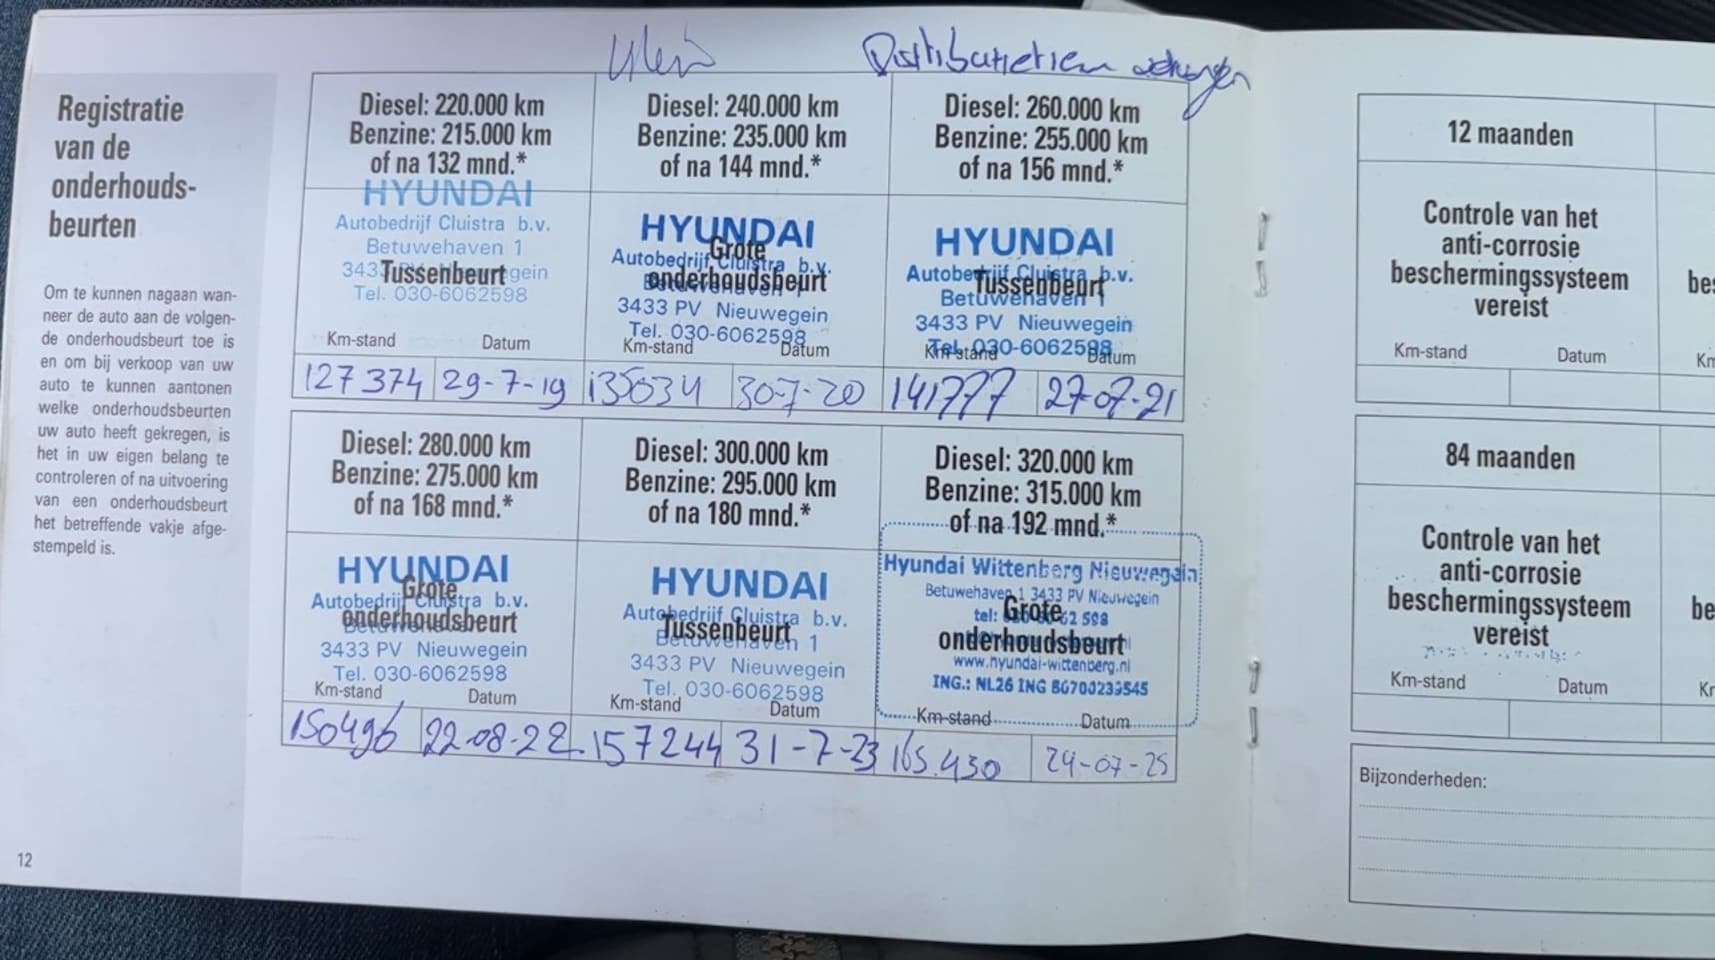 Klein
Distributieriem vervangen
Registratie
van de
onderhouds-
beurten
Om te kunnen nagaan wan-
neer de auto aan de volgen-
de onderhoudsbeurt toe is
en om bij verkoop van uw
auto te kunnen aantonen
welke onderhoudsbeurten
uw auto heeft gekregen, is
het in uw eigen belang te
controleren of na uitvoering
van een onderhoudsbeurt
het betreffende vakje afge-
stempeld is.
Diesel: 220.000 km
Benzine: 215.000 km
of na 132 mnd.*
HYUNDAI
Autobedrijf Cluistra b.v.
Betuwehaven 1
3433 PV Nieuwegein
Tussenbeurt
Tel. 030-6062598
Km-stand Datum
127374 29-7-19
Diesel: 240.000 km
Benzine: 235.000 km
of na 144 mnd.*
HYUNDAI
Grote
Autobedrijf Cluistra b.v.
onderhoudsbeurt
Betuwehaven 1
3433 PV Nieuwegein
Tel. 030-6062598
Km-stand Datum
135034 30-7-20
Diesel: 260.000 km
Benzine: 255.000 km
of na 156 mnd.*
HYUNDAI
Autobedrijf Cluistra b.v.
Tussenbeurt
Betuwehaven 1
3433 PV Nieuwegein
Tel. 030-6062598
Km-stand Datum
141777 27-07-21
Diesel: 280.000 km
Benzine: 275.000 km
of na 168 mnd.*
HYUNDAI
Grote
Autobedrijf Cluistra b.v.
onderhoudsbeurt
Betuwehaven 1
3433 PV Nieuwegein
Tel. 030-6062598
Km-stand Datum
150496 22-08-22
Diesel: 300.000 km
Benzine: 295.000 km
of na 180 mnd.*
HYUNDAI
Autobedrijf Cluistra b.v.
Tussenbeurt
Betuwehaven 1
3433 PV Nieuwegein
Tel. 030-6062598
Km-stand Datum
157244 31-7-23
Diesel: 320.000 km
Benzine: 315.000 km
of na 192 mnd.*
Hyundai Wittenberg Nieuwegein
Betuwehaven 1 3433 PV Nieuwegein
Grote
tel: 62 598
onderhoudsbeurt
www.hyundai-wittenberg.nl
ING.: NL26 ING B0700239545
Km-stand Datum
165.430 24-07-25
12
12 maanden
Controle van het
anti-corrosie
beschermingssysteem
vereist
Km-stand Datum
84 maanden
Controle van het
anti-corrosie
beschermingssysteem
vereist
Km-stand Datum
Bijzonderheden: